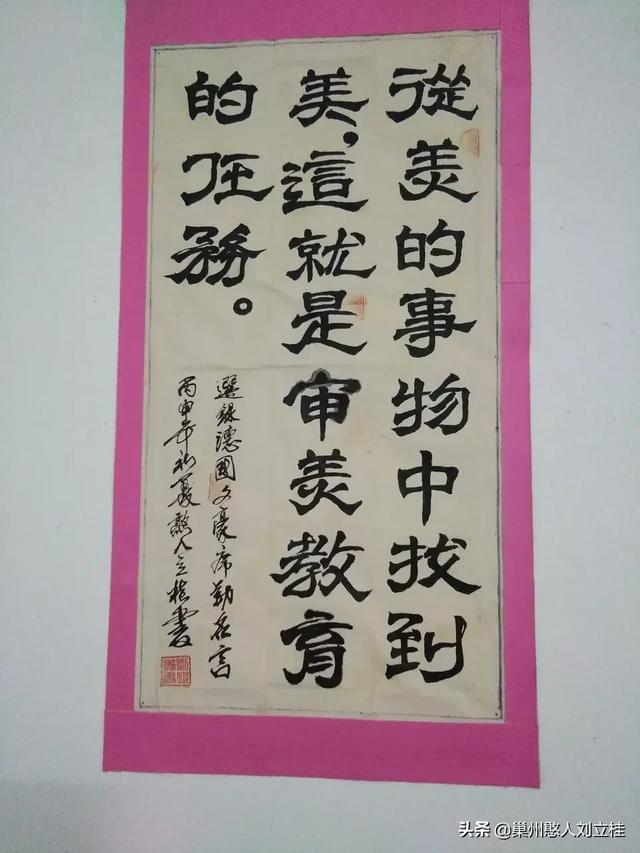 從美的事物中找到
美,這就是审美教育
的任務。
選錄德國文豪席勒名言
丙申年初夏憨人立桂書
头条 @巢州憨人刘立桂